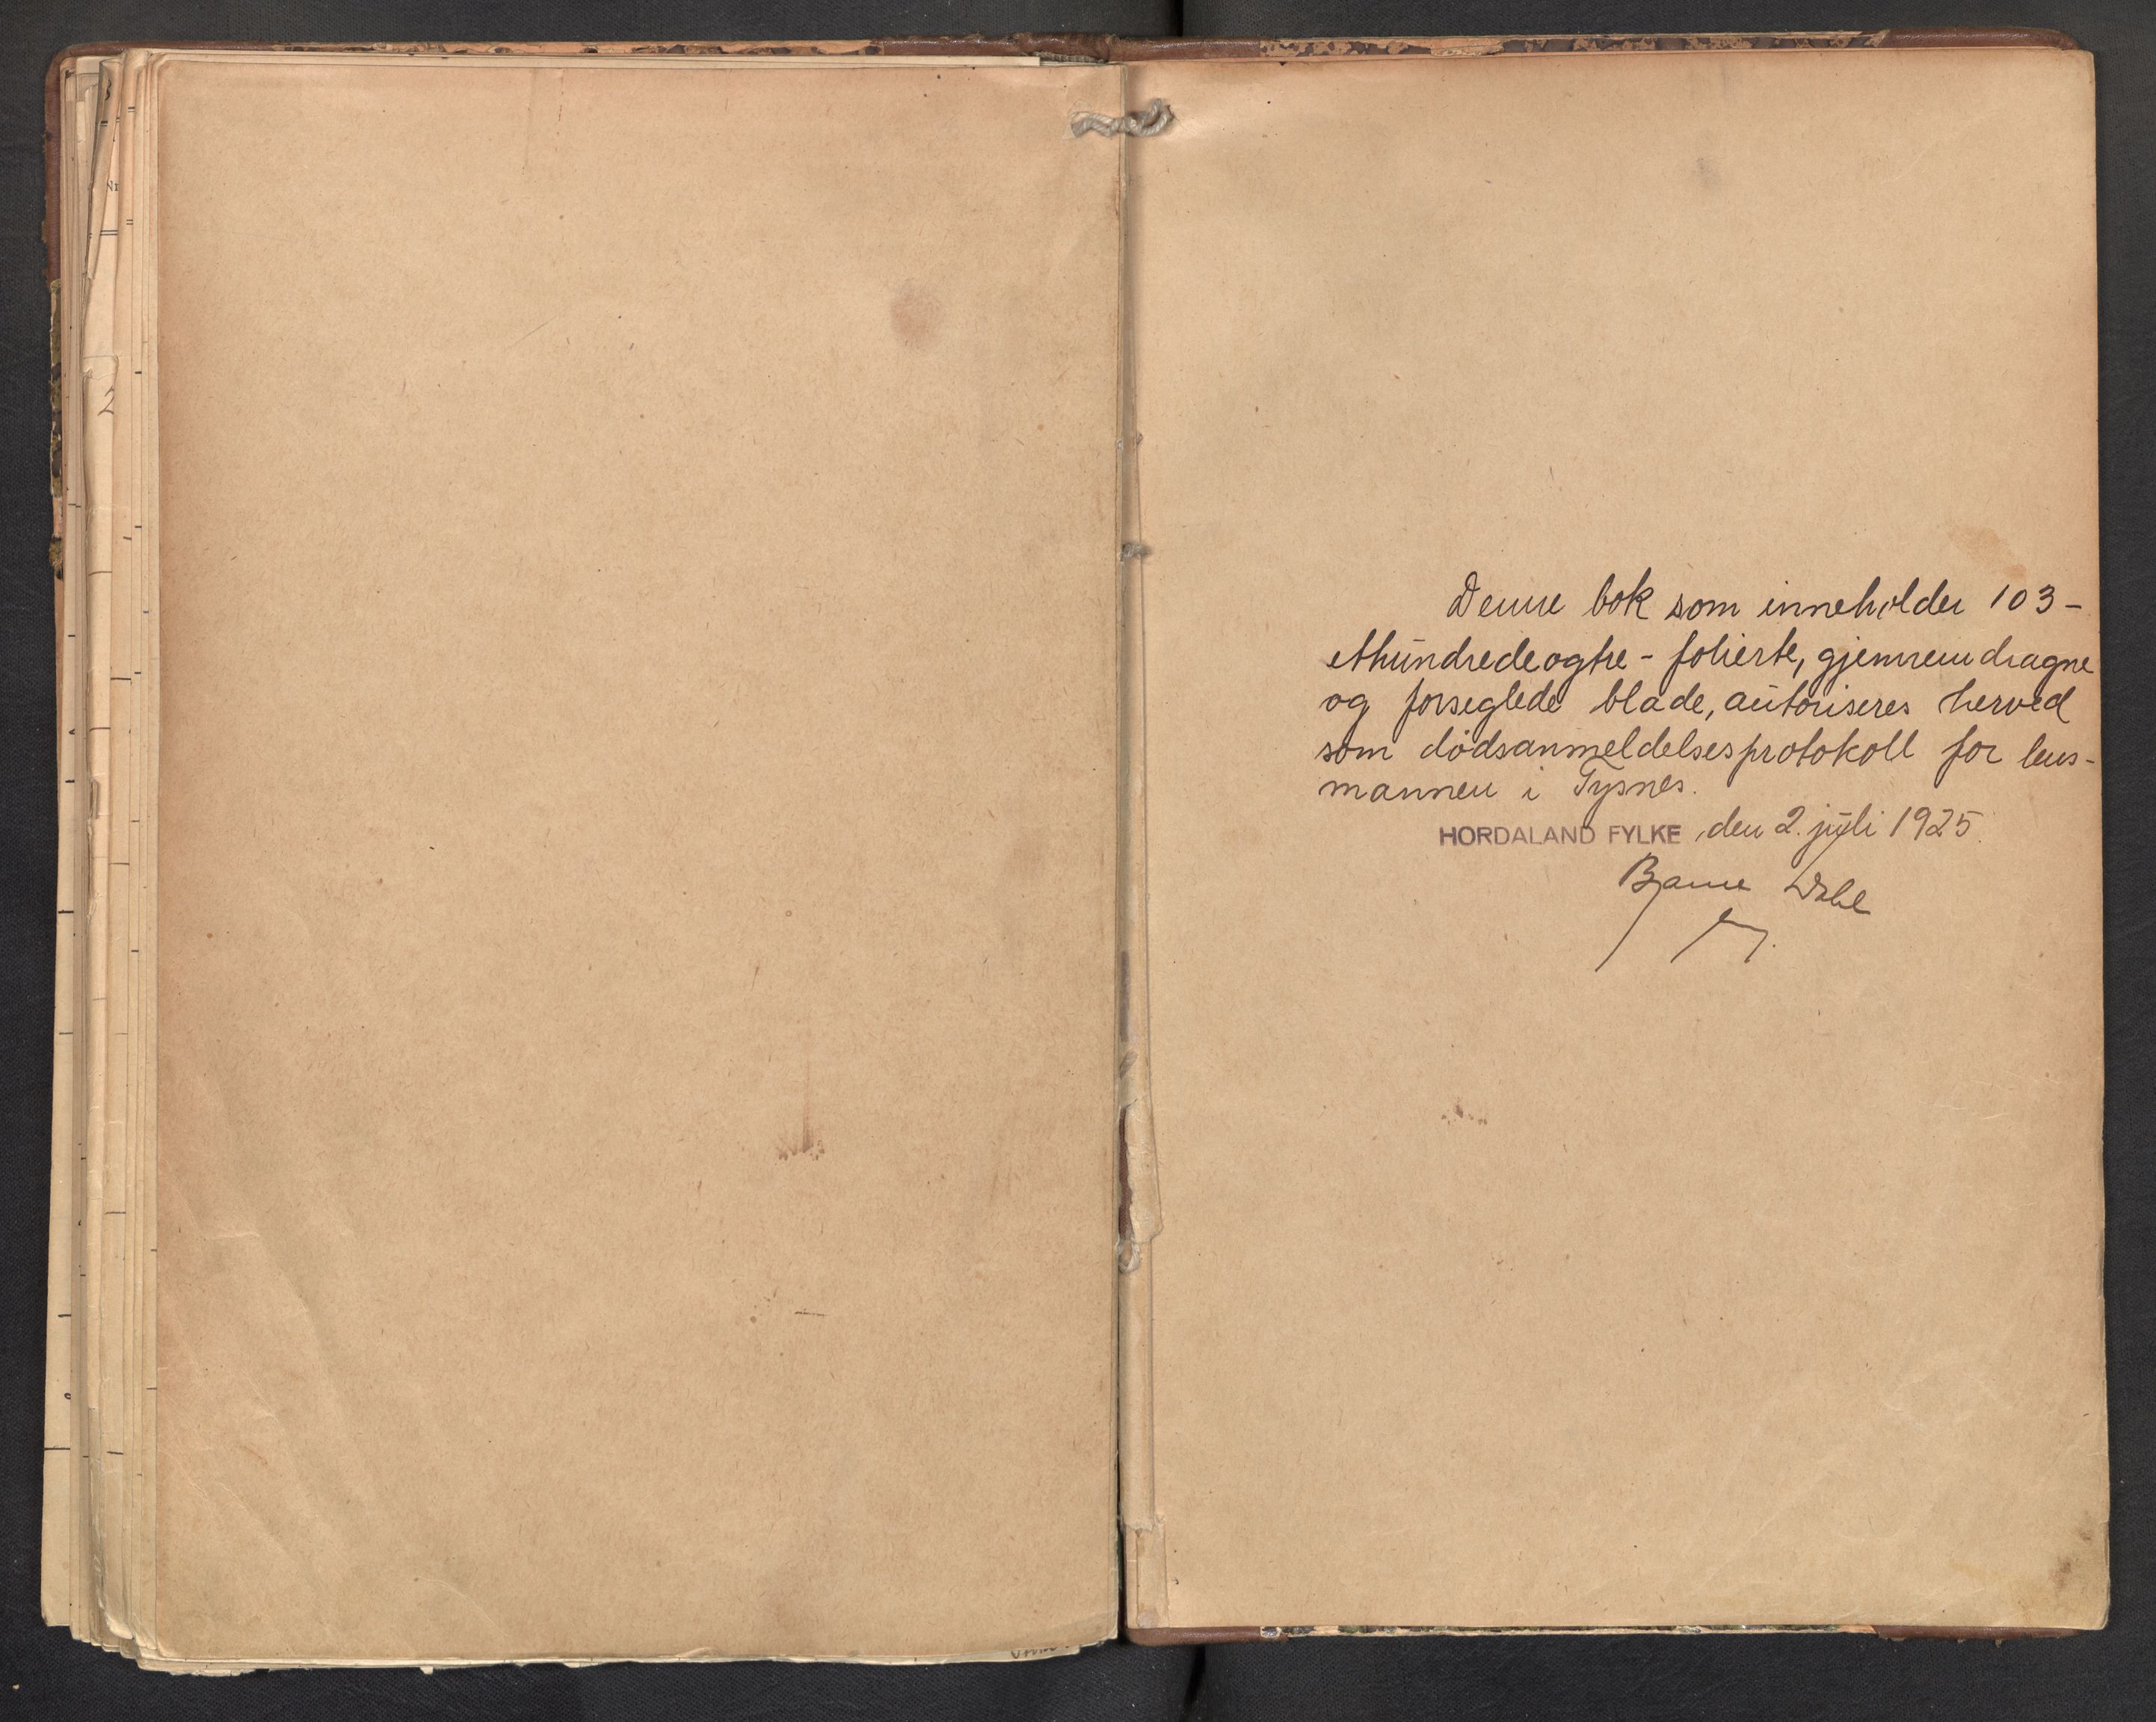 Denne bok som inneholder 103 -
ethundredeogtre - folierte, gjennemdragne
og forseglede blade, autoriseres herved
som dödsanmeldelsesprotokoll for lens-
mannen i Tysnes.
HORDALAND FYLKE, den 2. juli 1925.
Bjarne Dahl
2